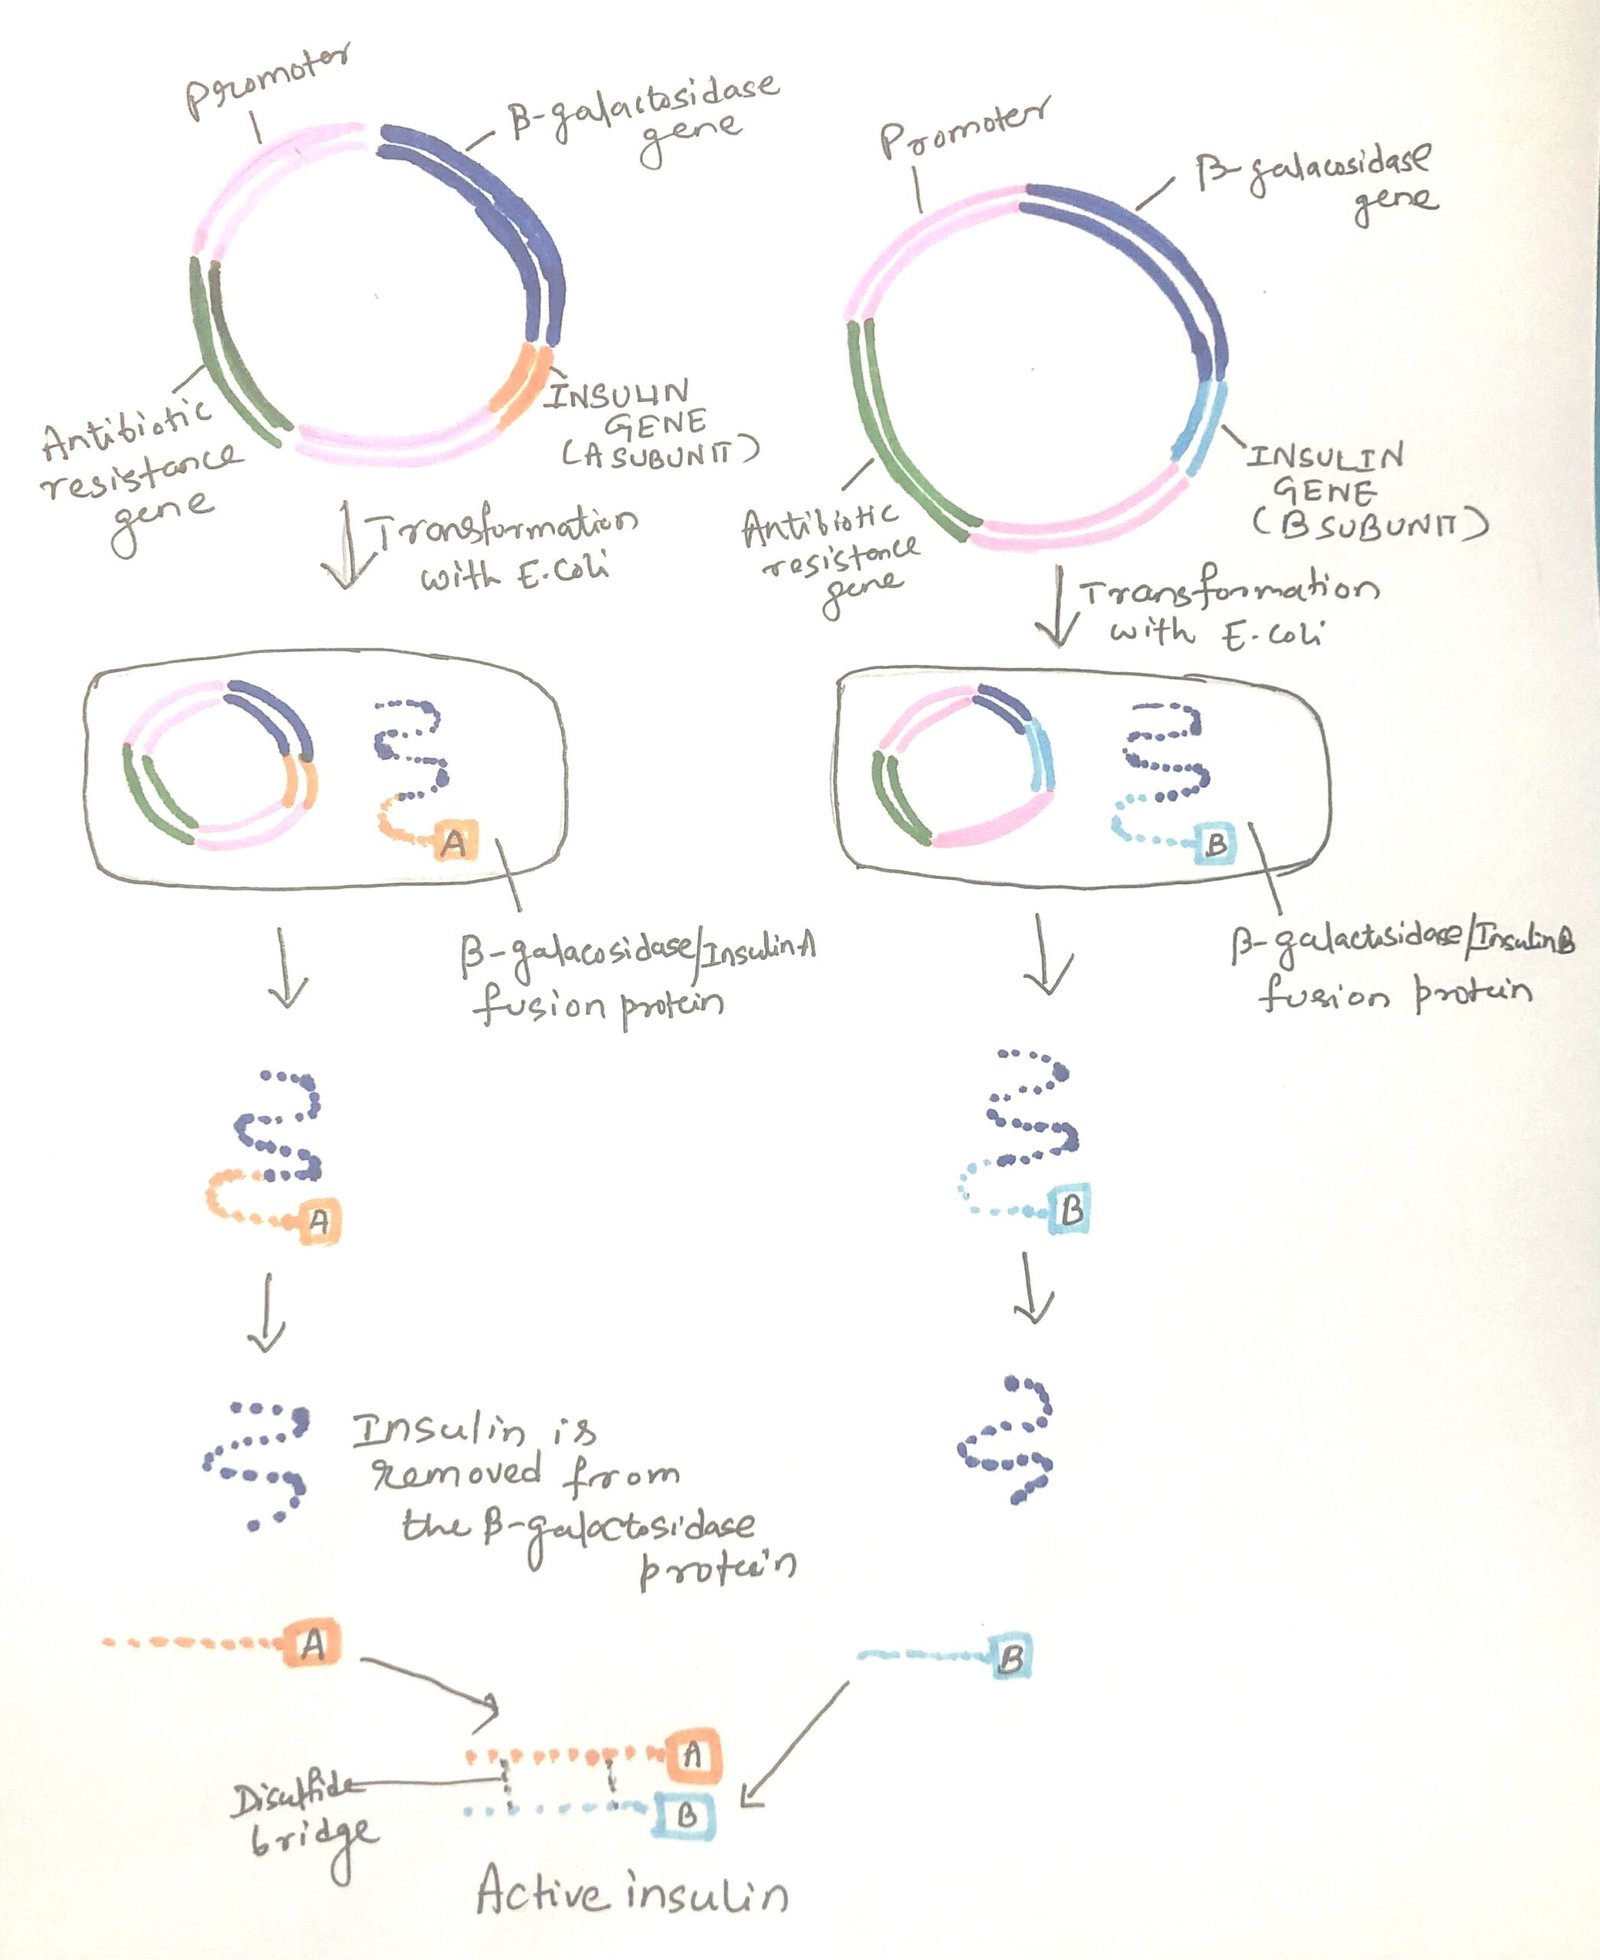 Promoter
β-galactosidase
gene
Antibiotic
resistance
gene
INSULIN
GENE
(A SUBUNIT)
Transformation
with E.Coli
Promoter
β-galacosidase
gene
Antibiotic
resistance
gene
INSULIN
GENE
(B SUBUNIT)
Transformation
with E.coli
A
β-galacosidase/InsulinA
fusion protein
B
β-galactosidase/InsulinB
fusion protein
A
B
Insulin is
removed from
the β-galactosidase
protein
A
B
A
B
Disulfide
bridge
Active insulin